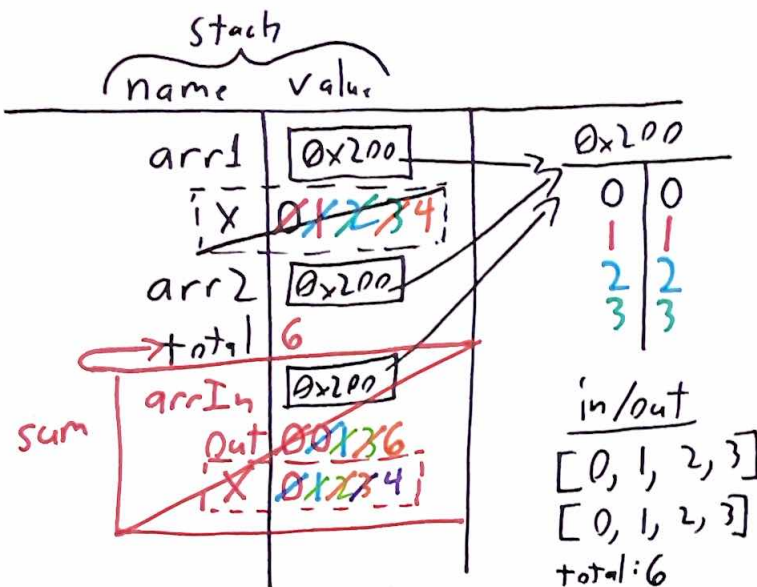 stach
name value
arr1 0x200
x 0 1 2 3 4
arr2 0x200
total 6
sum
arrIn 0x200
out 0 0 1 3 6
x 0 1 2 3 4
0x200
0 0
1 1
2 2
3 3
in/out
[0, 1, 2, 3]
[0, 1, 2, 3]
total: 6